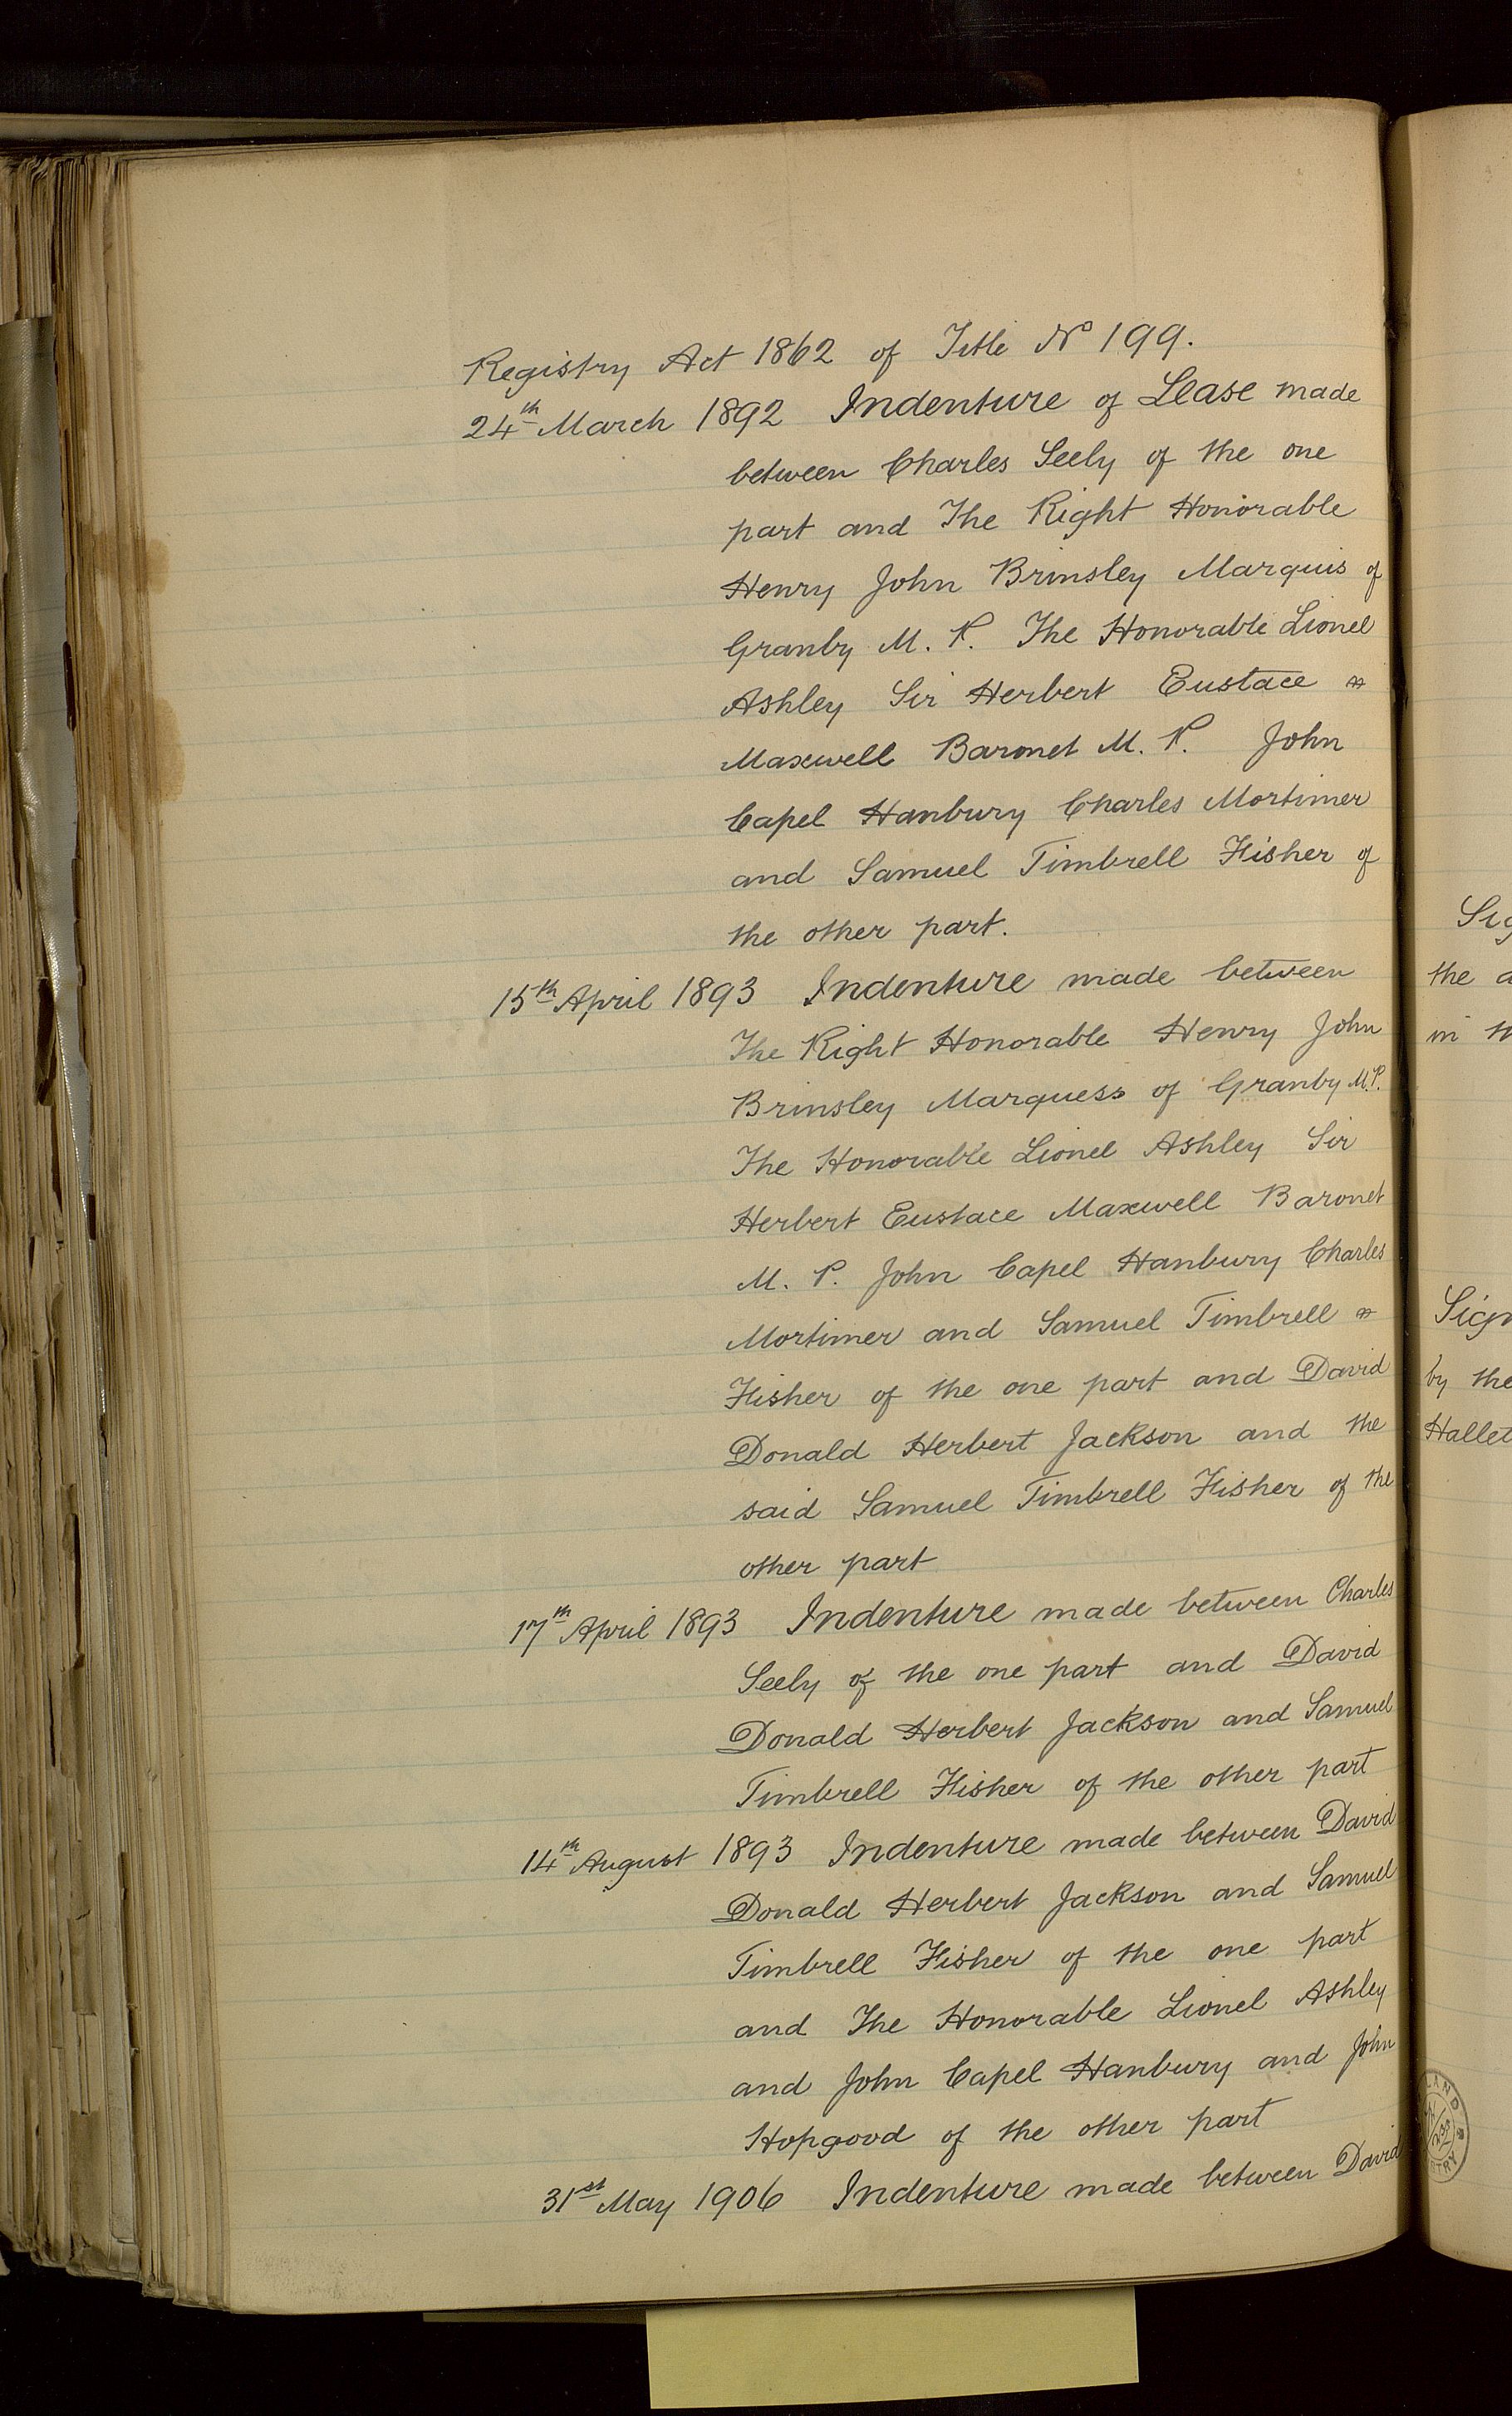 Registry Act 1862 of Title No 199.
24th March 1892 Indenture of Lease made
between Charles Seely of the one
part and The Right Honorable
Henry John Brinsley Marquis of
Granby M. P. The Honorable Lionel
Ashley Sir Herbert Eustace
Maxwell Baronet M. P. John
Capel Hanbury Charles Mortimer
and Samuel Timbrell Fisher of
the other part.
15th April 1893 Indenture made between
The Right Honorable Henry John
Brinsley Marquess of Granby M.P.
The Honorable Lionel Ashley Sir
Herbert Eustace Maxwell Baronet
M. P. John Capel Hanbury Charles
Mortimer and Samuel Timbrell
Fisher of the one part and David
Donald Herbert Jackson and the
said Samuel Timbrell Fisher of the
other part
17th April 1893 Indenture made between Charles
Seely of the one part and David
Donald Herbert Jackson and Samuel
Timbrell Fisher of the other part
14th August 1893 Indenture made between David
Donald Herbert Jackson and Samuel
Timbrell Fisher of the one part
and The Honorable Lionel Ashley
and John Capel Hanbury and John
Hopgood of the other part
31st May 1906 Indenture made between David
the
by the